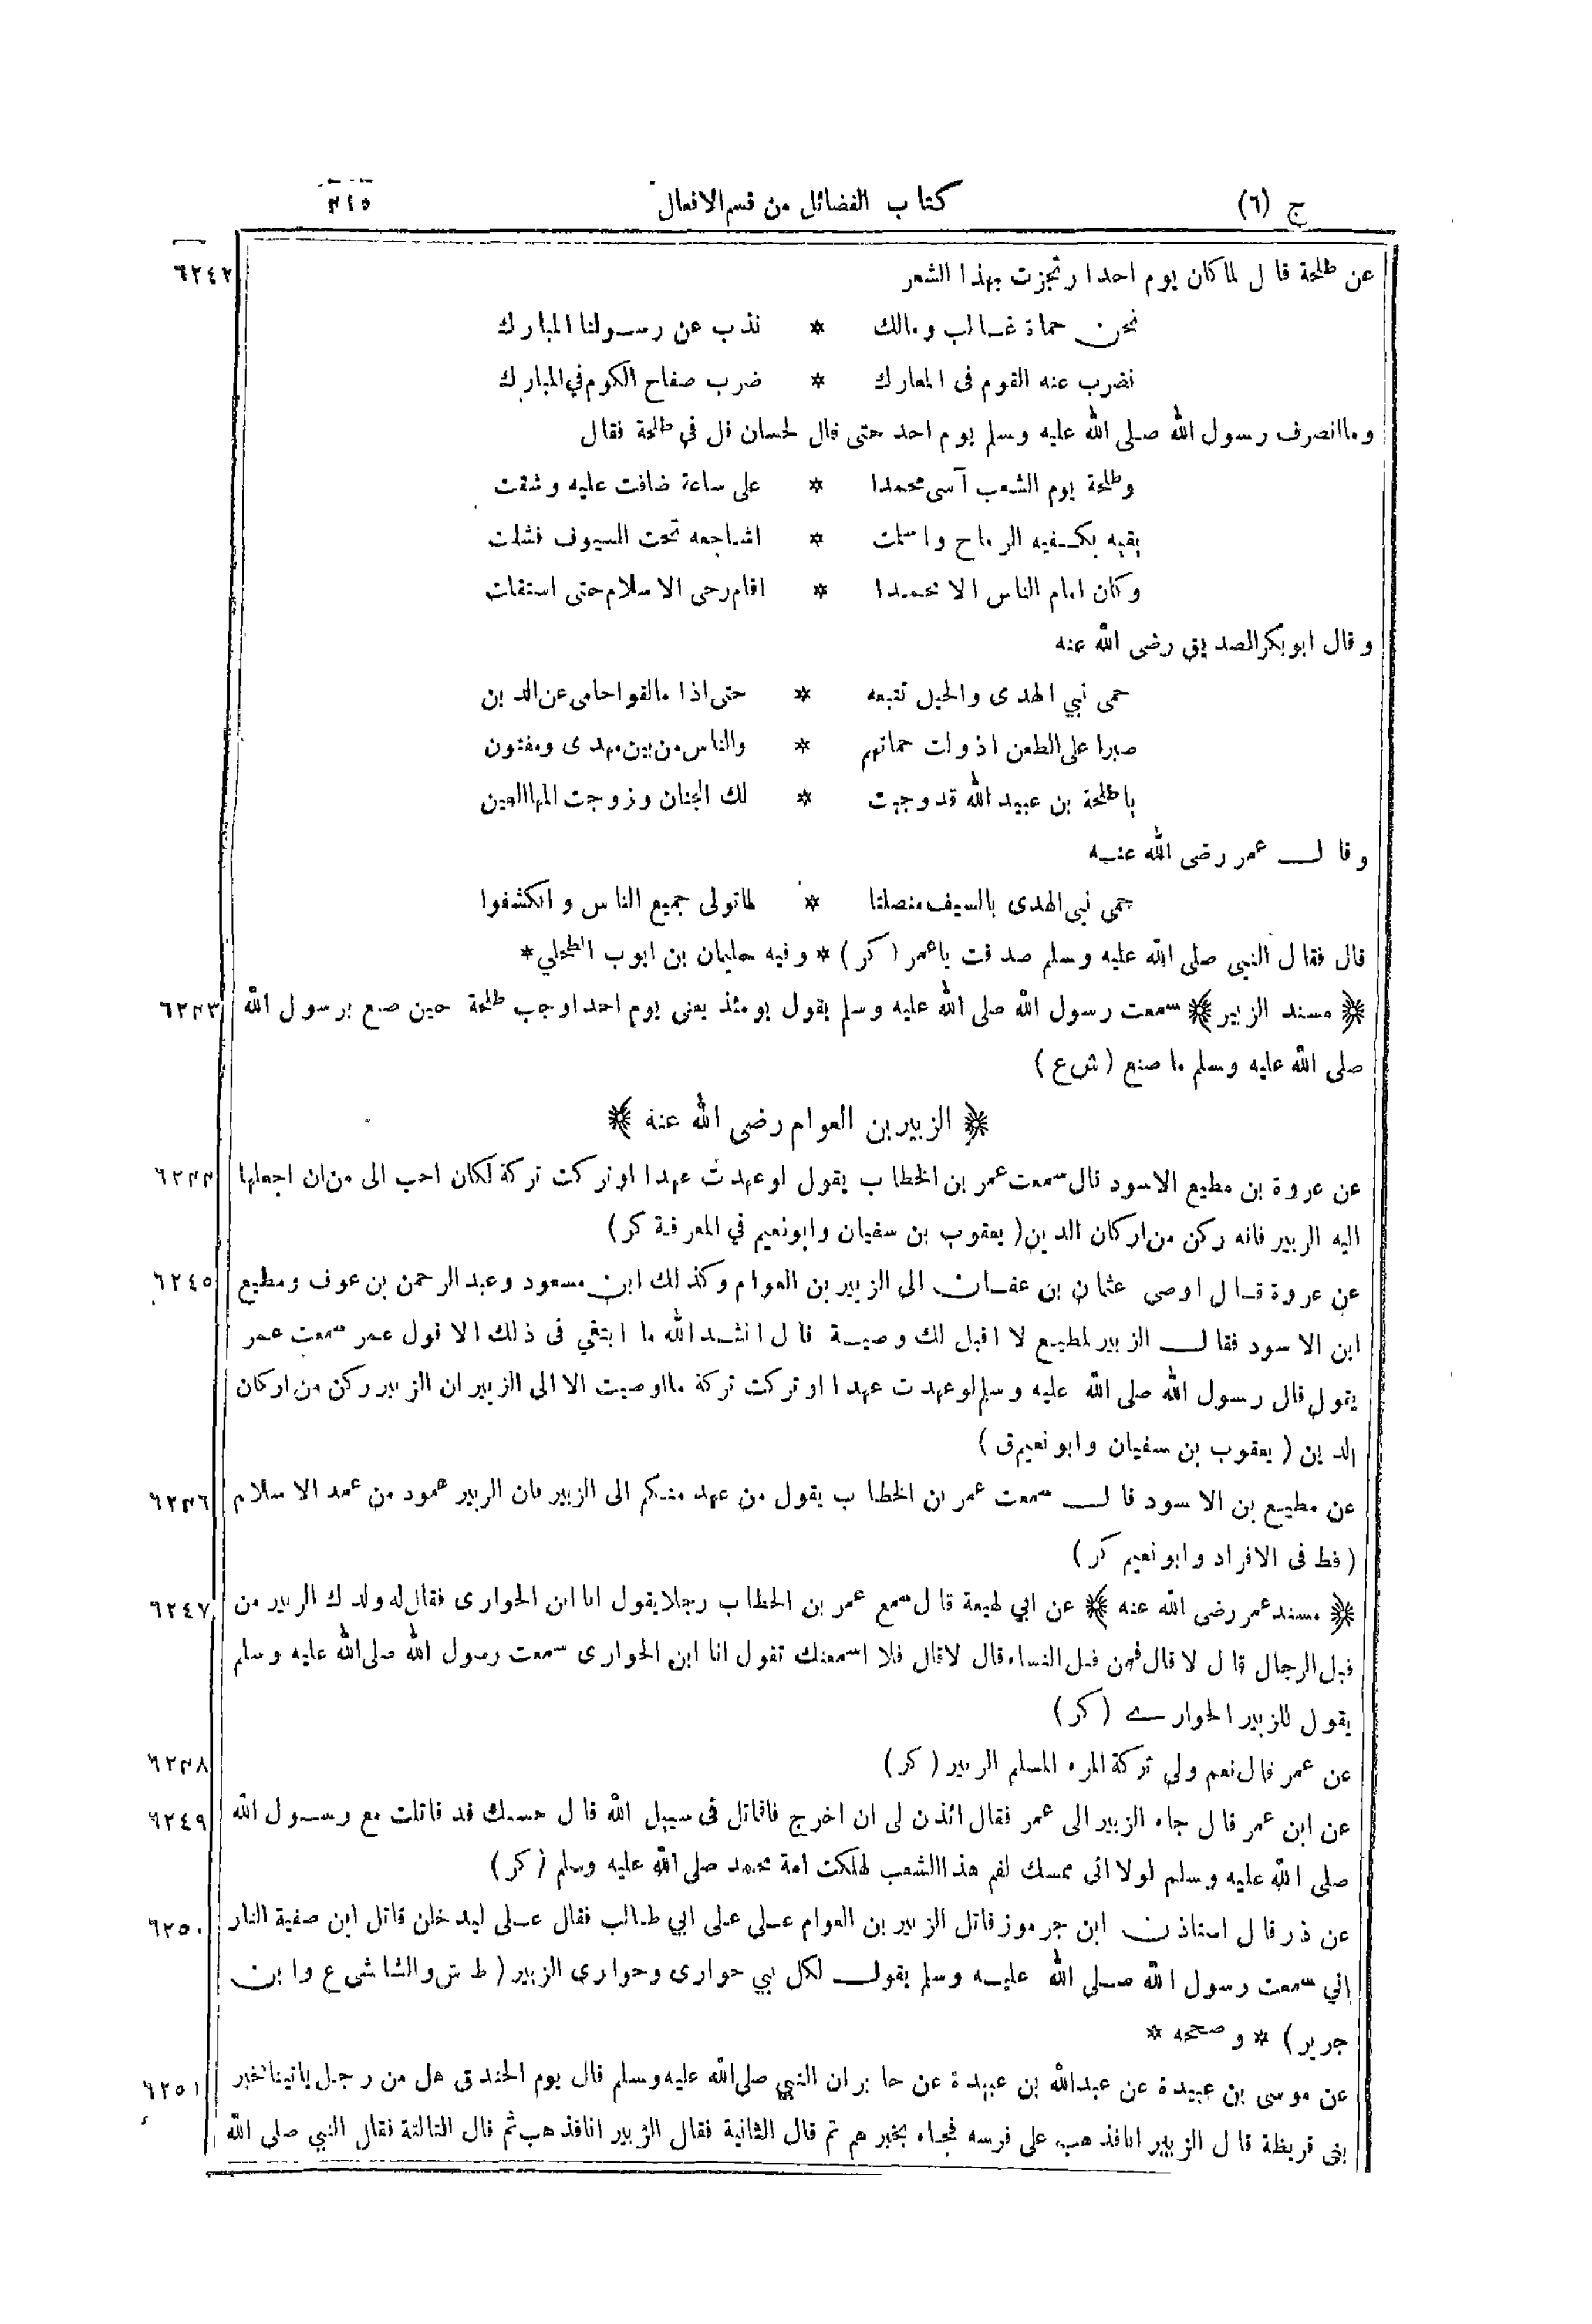 ج (٦) كتاب الفضائل من قسم الافعال ٤١٥
عن طلحة قال لما كان يوم احد ارتجزت بهذا الشعر ٦٢٤٢
نحن حماة غالب ومالك * نذب عن رسولنا المبارك
نضرب عنه القوم فى المعارك * ضرب صفاح الكوم في المبارك
وما انصرف رسول الله صلى الله عليه وسلم يوم احد حتى قال لحسان قل في طلحة فقال
وطلحة يوم الشعب آسى محمدا * على ساعة ضاقت عليه وشقت
يقيه بكفيه الرماح واسلمت * اشاجعه تحت السيوف فشلت
وكان امام الناس الا محمدا * اقام رحى الاسلام حتى استقلت
وقال ابو بكر الصديق رضى الله عنه
حمى نبي الهدى والخيل تتبعه * حتى اذا ما لقوا حامى عن الدين
صبرا على الطعن اذ ولت حماتهم * والناس من بين مهدى ومفتون
يا طلحة بن عبيد الله قد وجبت * لك الجنان وزوجت المها العين
وقال عمر رضى الله عنه
حمى نبي الهدى بالسيف منصلتا * لما تولى جميع الناس وانكشفوا
قال فقال النبي صلى الله عليه وسلم صدقت يا عمر (كر) * وفيه سليمان بن ايوب الطلحي *
﴿ مسند الزبير ﴾ سمعت رسول الله صلى الله عليه وسلم يقول يومئذ يعنى يوم احد اوجب طلحة حين صنع برسول الله ٦٢٤٣
صلى الله عليه وسلم ما صنع (ش ع)
﴿ الزبير بن العوام رضى الله عنه ﴾
عن عروة بن مطيع الاسود قال سمعت عمر بن الخطاب يقول لو عهدت عهدا او تركت تركة لكان احب الى من ان اجعلها ٦٢٤٤
اليه الزبير فانه ركن من اركان الدين (يعقوب بن سفيان وابو نعيم في المعرفة كر)
عن عروة قال اوصى عثمان بن عفان الى الزبير بن العوام وكذلك ابن مسعود وعبد الرحمن بن عوف ومطيع ٦٢٤٥
ابن الاسود فقال الزبير لمطيع لا اقبل لك وصية قال انشد الله ما ابتغي فى ذلك الا قول عمر سمعت عمر
يقول قال رسول الله صلى الله عليه وسلم لو عهدت عهدا او تركت تركة ما اوصيت الا الى الزبير ان الزبير ركن من اركان
الدين (يعقوب بن سفيان وابو نعيم ق)
عن مطيع بن الاسود قال سمعت عمر بن الخطاب يقول من عهد منكم الى الزبير فان الزبير عمود من عمد الاسلام ٦٢٤٦
(قط فى الافراد وابو نعيم كر)
﴿ مسند عمر رضى الله عنه ﴾ عن ابي لهيعة قال سمع عمر بن الخطاب رجلا يقول انا ابن الحوارى فقال له ولدك الزبير من ٦٢٤٧
قبل الرجال قال لا قال فمن قبل النساء قال لا قال فلا اسمعنك تقول انا ابن الحوارى سمعت رسول الله صلى الله عليه وسلم
يقول للزبير الحوارى (كر)
عن عمر قال نعم ولى تركة المرء المسلم الزبير (كر) ٦٢٤٨
عن ابن عمر قال جاء الزبير الى عمر فقال ائذن لى ان اخرج فاقاتل فى سبيل الله قال حسبك قد قاتلت مع رسول الله ٦٢٤٩
صلى الله عليه وسلم لولا انى ممسك لفم هذا الشعب لهلكت امة محمد صلى الله عليه وسلم (كر)
عن ذر قال استاذن ابن جرموز قاتل الزبير بن العوام على على ابي طالب فقال على ليدخلن قاتل ابن صفية النار ٦٢٥٠
اني سمعت رسول الله صلى الله عليه وسلم يقول لكل نبي حوارى وحوارى الزبير (ط ش والشاشى ع وابن
جرير) * وصححه *
عن موسى بن عبيدة عن عبدالله بن عبيدة عن جابر ان النبي صلى الله عليه وسلم قال يوم الخندق هل من رجل ياتينا بخبر ٦٢٥١
بنى قريظة قال الزبير انا فذهب على فرسه فجاء بخبرهم ثم قال الثانية فقال الزبير انا فذهب ثم قال الثالثة فقال النبي صلى الله